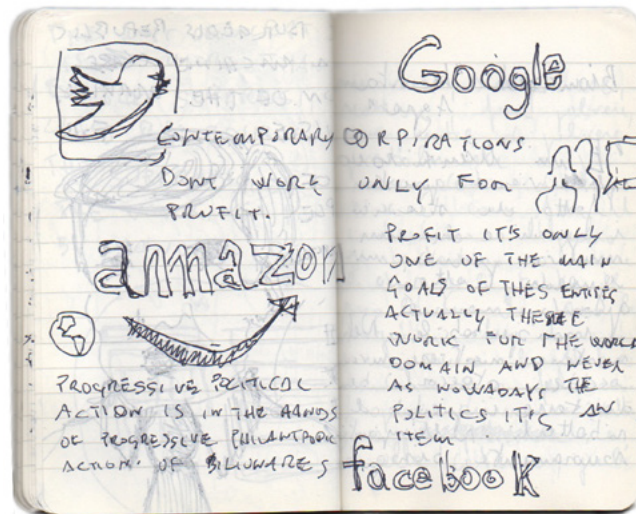 Google
CONTEMPORARY CORPIRATIONS
DONT WORK ONLY FOR
PROFIT.
amazon
PROGRESSIVE POLITICAL
ACTION IS IN THE HANDS
OF PROGRESSIVE PHILANTROPIC
ACTION. OF BILIONARES
PROFIT IT'S ONLY
ONE OF THE MAIN
GOALS OF THES ENTITES
ACTUALLY THESEE
WORK FOR THE WORLD
DOMAIN AND NEVER
AS NOWADAYS THE
POLITICS IT'S AN
ITEM.
facebook